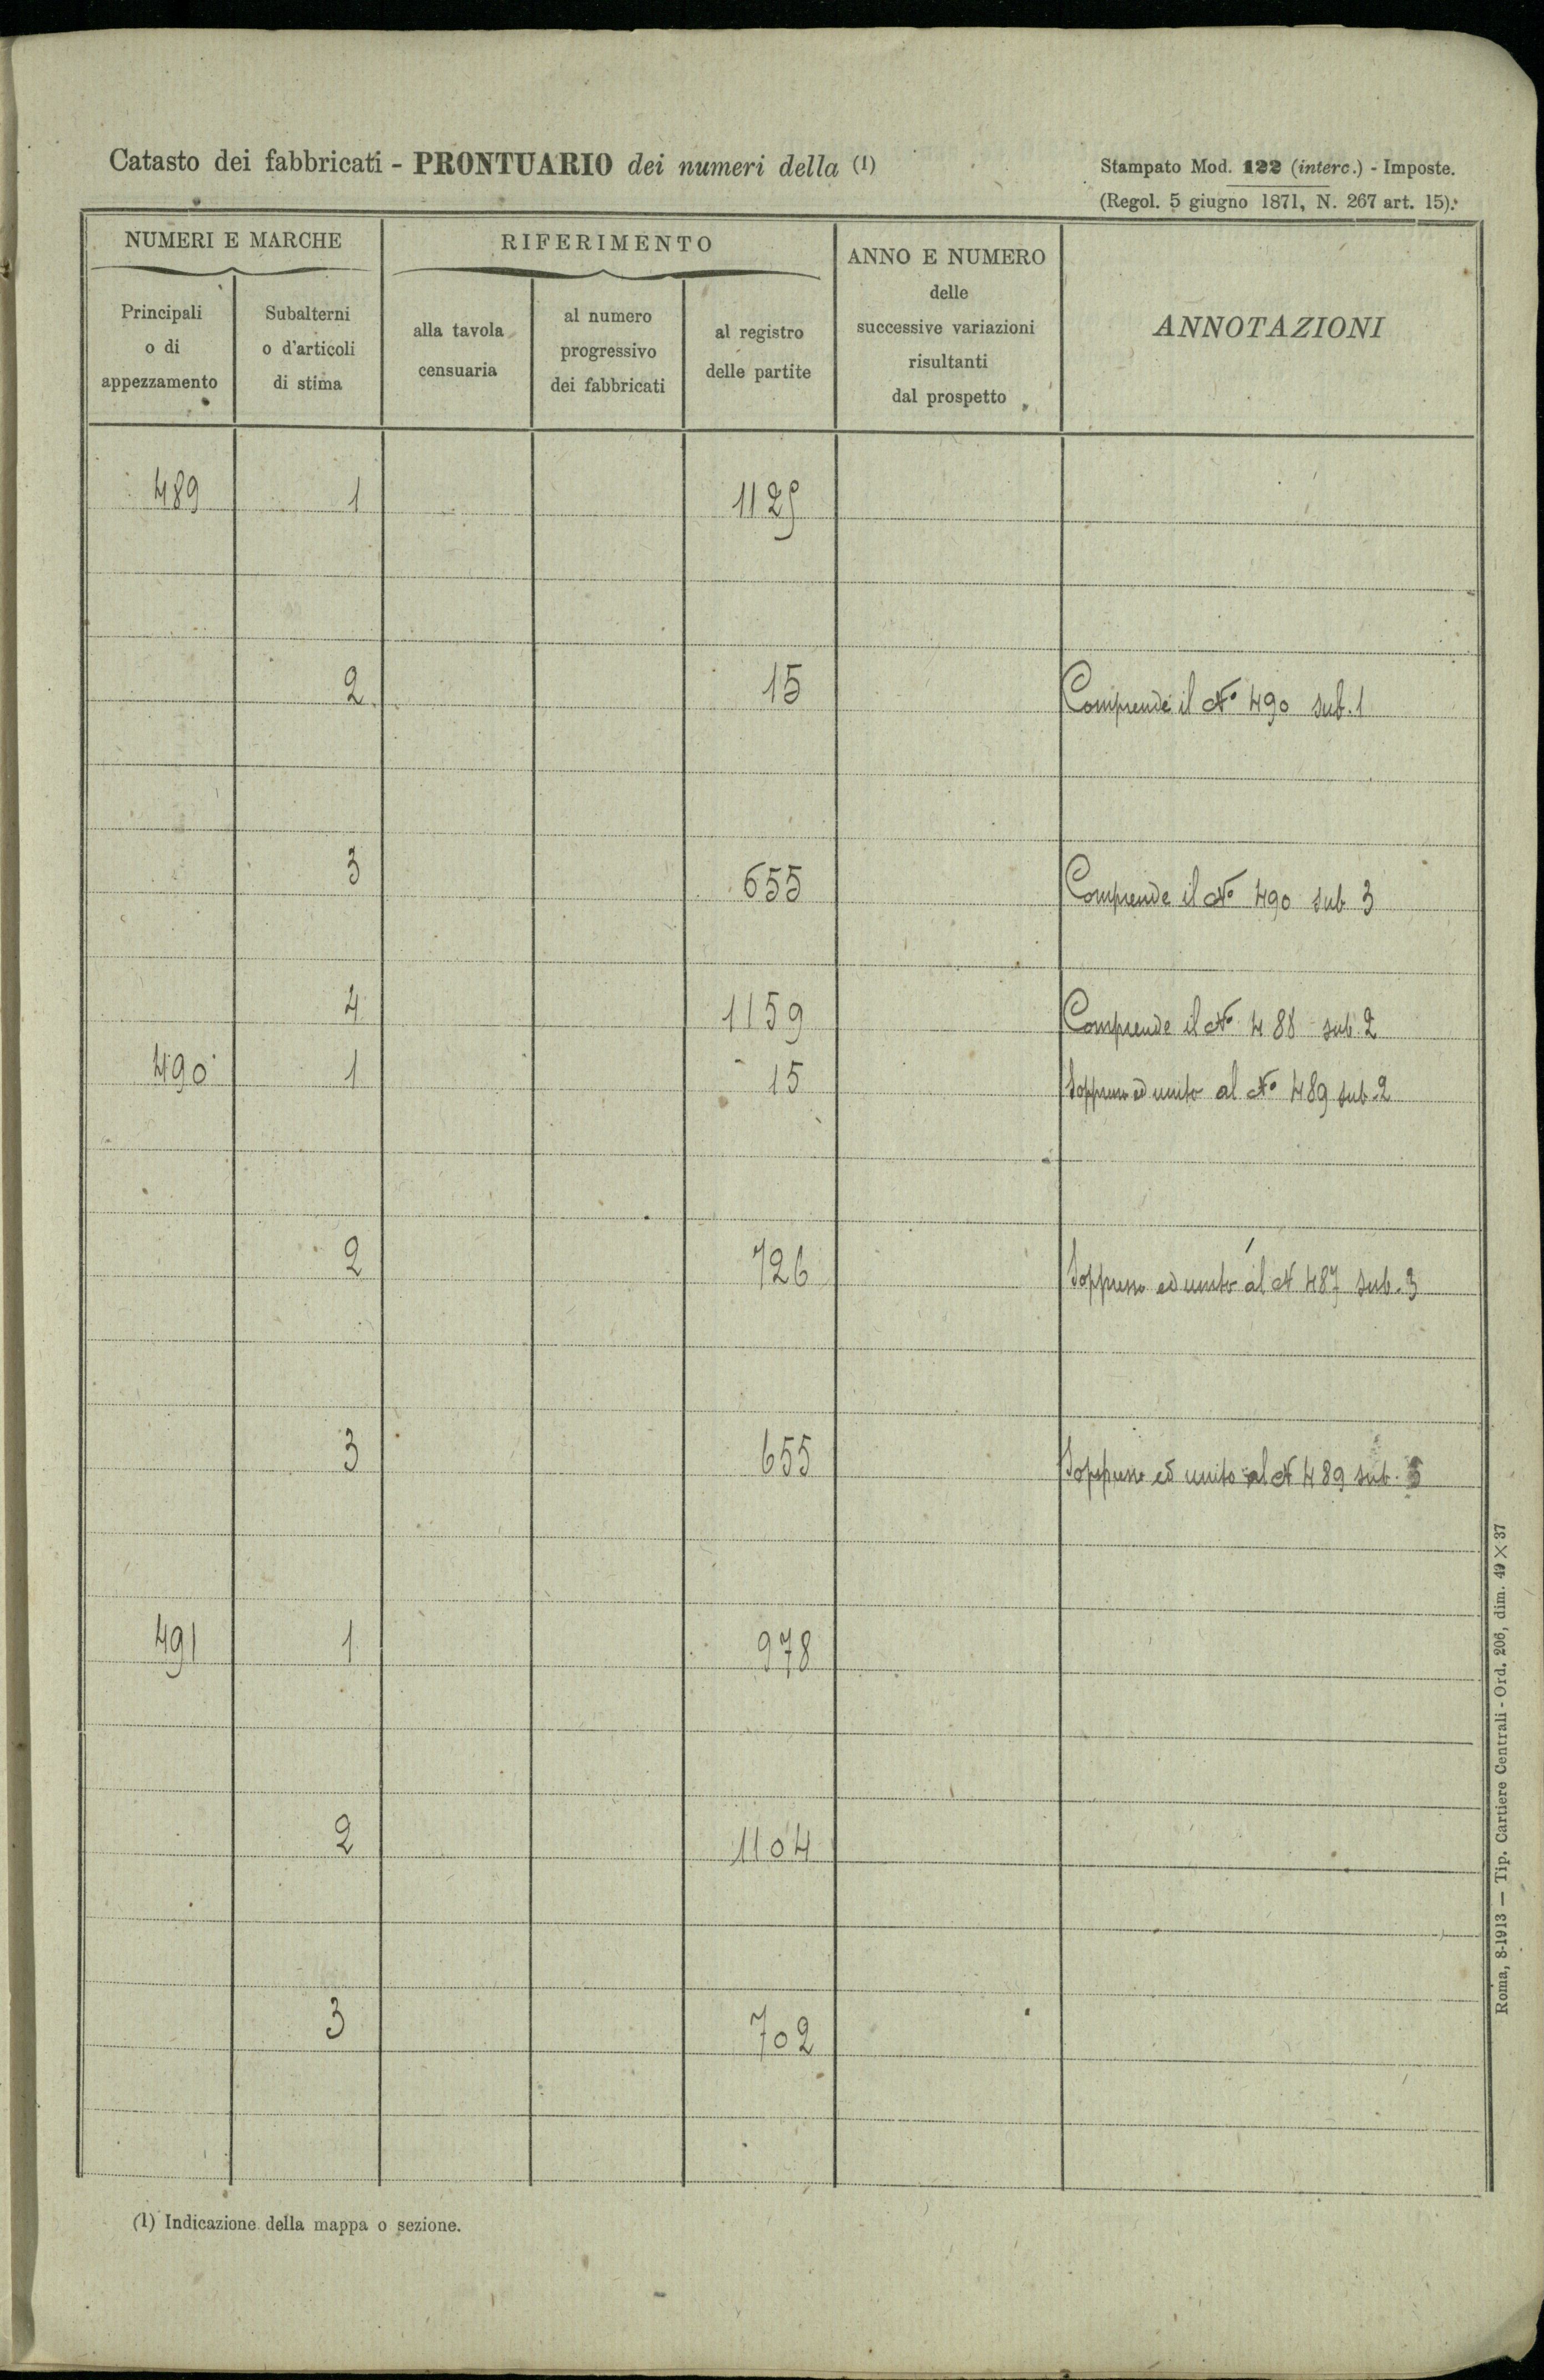 Catasto dei fabbricati - PRONTUARIO dei numeri della (1)
Stampato Mod. 122 (interc.) - Imposte.
(Regol. 5 giugno 1871, N. 267 art. 15).
NUMERI E MARCHE
RIFERIMENTO
ANNO E NUMERO
delle
successive variazioni
risultanti
dal prospetto
ANNOTAZIONI
Principali
o di
appezzamento
Subalterni
o d'articoli
di stima
alla tavola
censuaria
al numero
progressivo
dei fabbricati
al registro
delle partite
489 1 1125
2 15 Comprende il N° 490 sub. 1
3 655 Comprende il N° 490 sub 3
4 1159 Comprende il N° 488 sub. 2
490 1 15 Soppresso ed unito al N° 489 sub. 2
2 726 Soppresso ed unito al N 487 sub. 3
3 655 Soppresso ed unito al N 489 sub.
491 1 978
2 1104
3 702
(1) Indicazione della mappa o sezione.
Roma, 8-1913 — Tip. Cartiere Centrali - Ord. 206, dim. 49 × 37